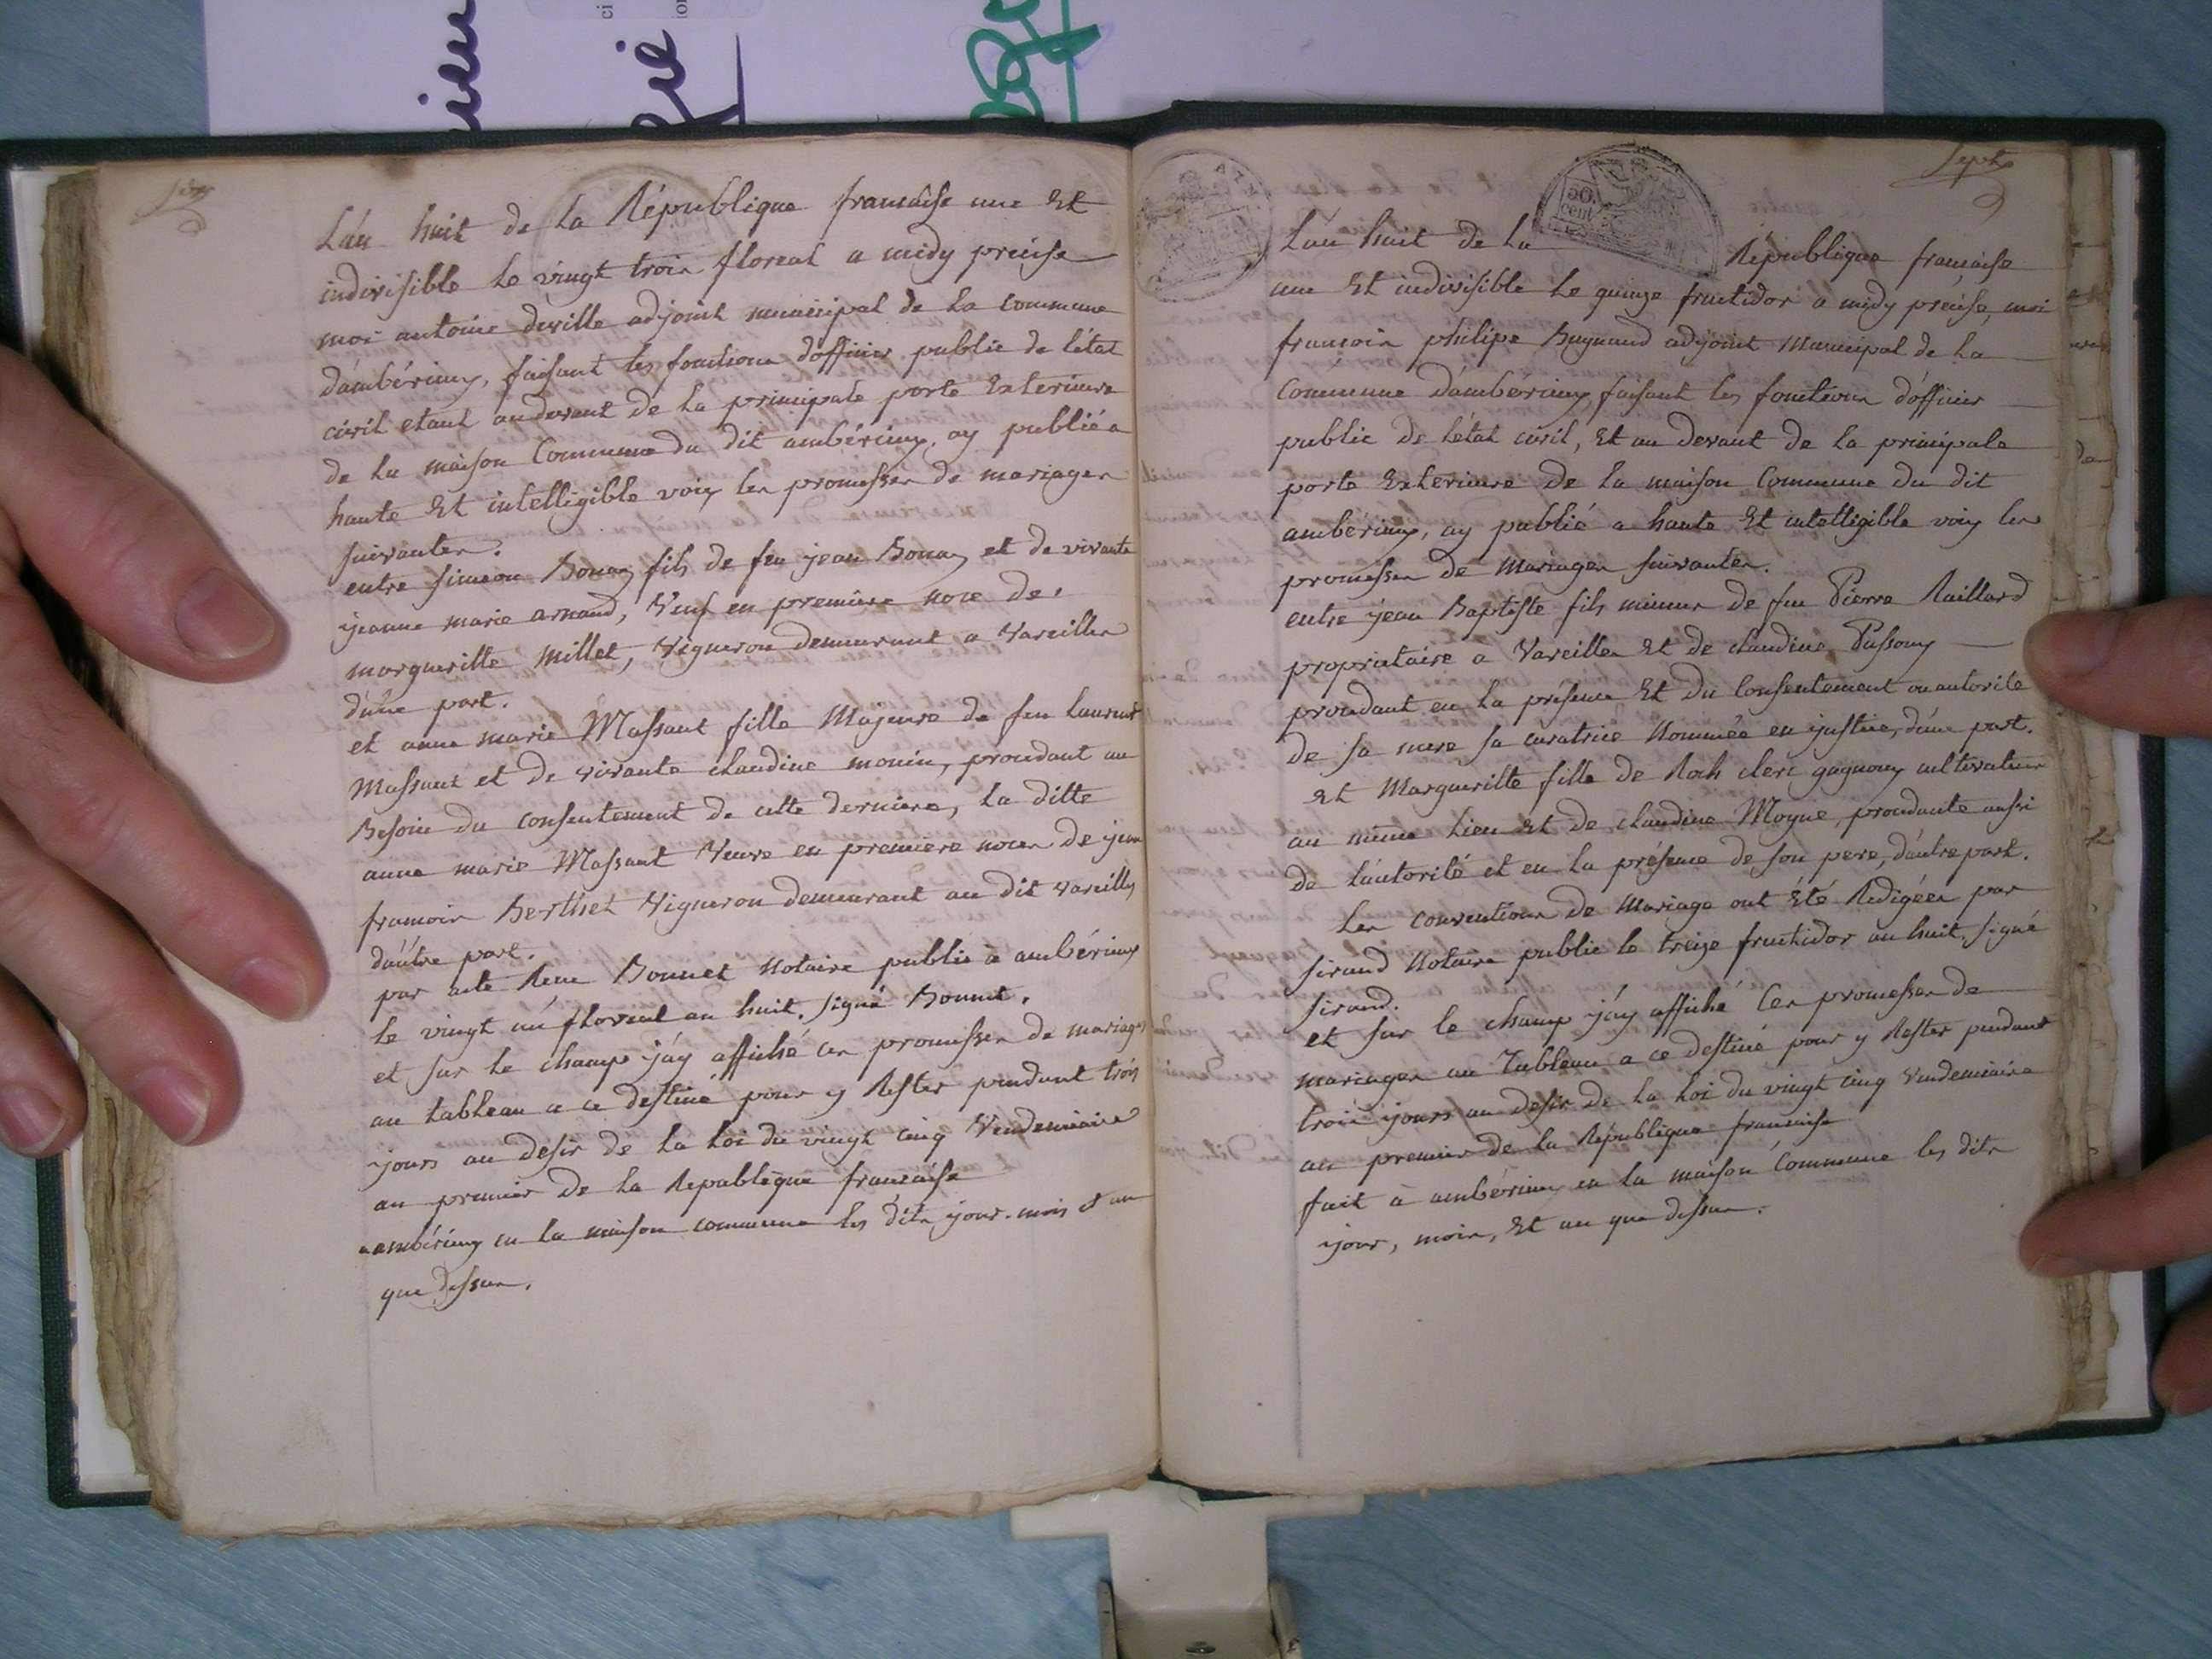 six
L'an huit de la République francaise une Et
indivisible le vingt trois floreal a midy précise
moi antoine deville adjoint municipal de la commune
d'ambérieux, faisant les fonctions d'officier public de l'état
civil etant au devant de la principale porte Exterieure
de la maison Commune du dit ambérieux, ay publié a
haute Et intelligible voix les promesses de mariages
suivantes.
entre simeon Bonaz fils de feu jean Bonaz et de vivante
jeanne marie arnaud, Veuf en première noce de
margueritte millet, Vigneron demeurant a Vareilles
d'une part.
et anne marie Massant fille Majeure de feu laurent
Massant et de vivante claudine monin, procedant au
Besoin du consentement de cette derniere, la ditte
anne marie Massant Veuve en premiere noces de jean
francois Berthet Vigneron demeurant au dit vareilles
d'autre part.
par acte Reçu Bonnet Notaire public à ambérieux
le vingt un floreal an huit, signé Bonnet.
et sur le champ j'ay affiché ces promesses de mariages
au tableau a ce destiné pour y Rester pendant trois
jours au desir de la Loi du vingt cinq Vendemiaire
an premier de la Republique francaise
a ambérieux en la maison commune les dits jour. mois et an
que dessus.
sept
50.
cent
L'an huit de la République française
une Et indivisible le quinze fructidor a midy précise, moi
francois philipe Bugnand adjoint Municipal de la
Commune d'ambérieux faisant les fonctions d'officier
public de l'état civil, Et au devant de la principale
porte Exterieure de la maison Commune du dit
ambérieux, ay publié a haute Et intelligible voix les
promesses de Mariages suivantes.
entre jean Baptiste fils mineur de feu Pierre Raillard
propriétaire a Vareilles Et de claudine
procedant en la présence Et du Consentement ou autorité
de sa mere sa curatrice Nommée en justice, d'une part.
Et Margueritte fille de Roch clerc gagnoux cultivateur
au même lieu Et de claudine Moyne, procedante aussi
de l'autorité et en la présence de son pere, d'autre part.
Les conventions de Mariage ont été Redigées par
sirand Notaire public le treize fructidor an huit, signé
sirand.
et sur le champ j'ay affiché Ces promesses de
mariages au Tableau a ce destiné pour y Rester pendant
trois jours au desir de la Loi du vingt cinq Vendemiaire
an premier de la République francaise
fait à ambérieux en la maison Commune les dits
jour, mois, Et an que dessus.